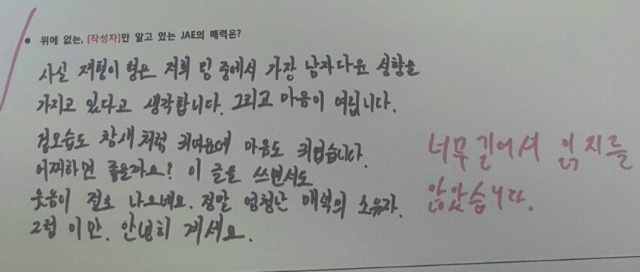 위에 없는, [작성자]만 알고 있는 JAE의 매력은?
사실 재형이 형은 저희 팀 중에서 가장 남자다운 성향을
가지고 있다고 생각합니다. 그리고 마음이 여립니다.
겉모습도 참새처럼 귀여운데 마음도 귀엽습니다.
어찌하면 좋을까요? 이 글을 쓰면서도
웃음이 절로 나오네요. 정말 엄청난 매력의 소유자.
그럼 이만. 안녕히 계세요.
너무 길어서 읽지를
않았습니다.